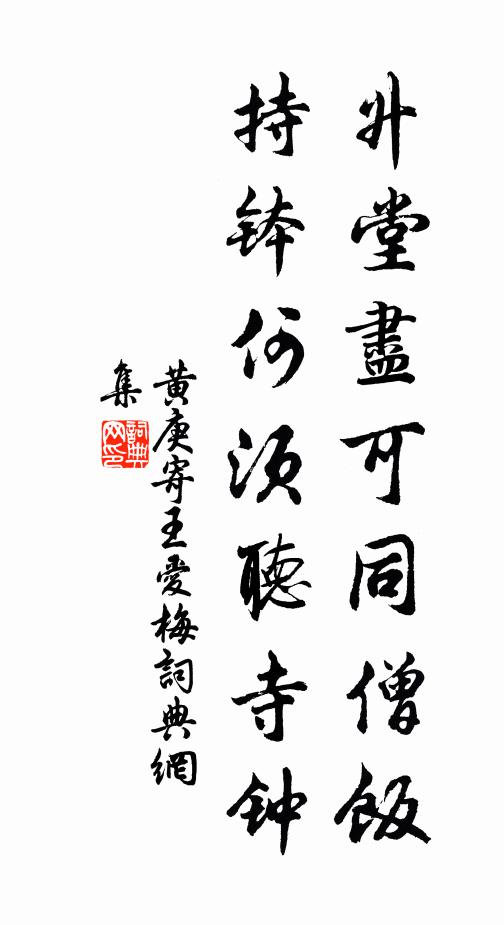 升堂盡可同僧飯
持鉢何須聽寺钟
黄庚寄王愛梅詞典網
集
詞典
网印